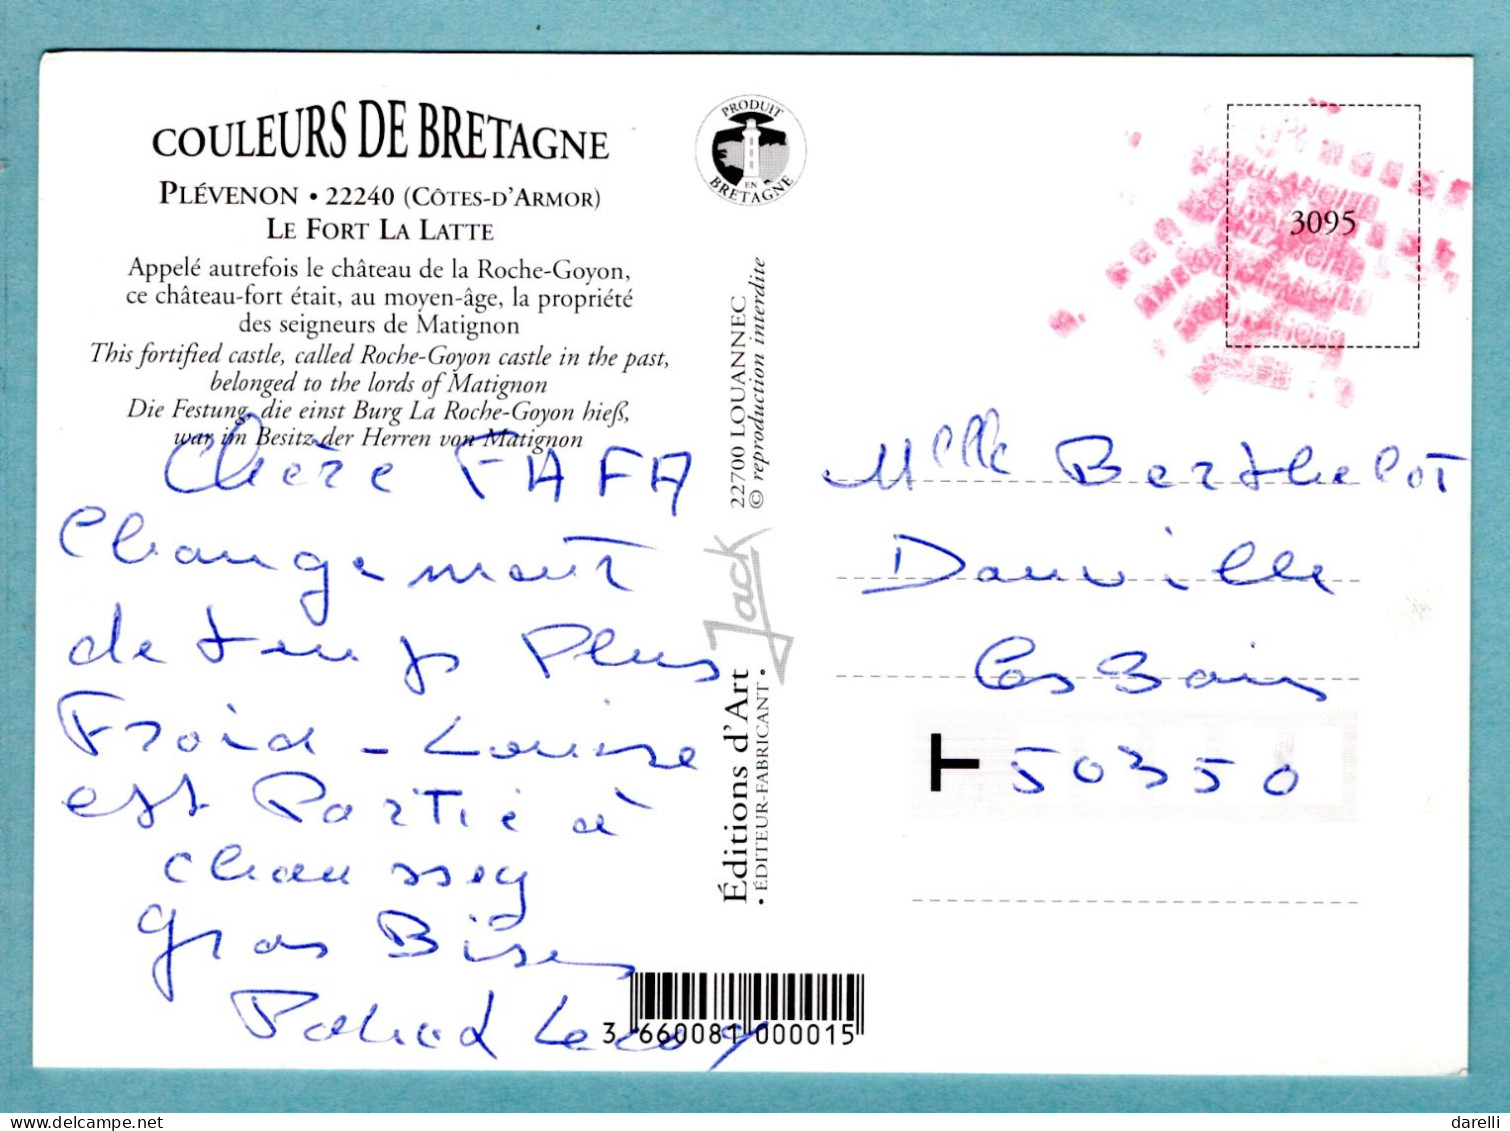 COULEURS DE BRETAGNE
PLÉVENON • 22240 (CÔTES-D'ARMOR)
LE FORT LA LATTE
Appelé autrefois le château de la Roche-Goyon,
ce château-fort était, au moyen-âge, la propriété
des seigneurs de Matignon
This fortified castle, called Roche-Goyon castle in the past,
belonged to the lords of Matignon
Die Festung, die einst Burg La Roche-Goyon hieß,
war im Besitz der Herren von Matignon
Chère FAFA
Changement
de temps Plus
Froid - Louise
est Partie à
chaussey
gros Bises
PRODUIT
EN
BRETAGNE
Éditions d'Art Jack 22700 LOUANNEC
• ÉDITEUR-FABRICANT • © reproduction interdite
3 660081 000015
3095
AMBULANCIER
Melle Berthelot
Donville
Les Bains
T 50350
darelli